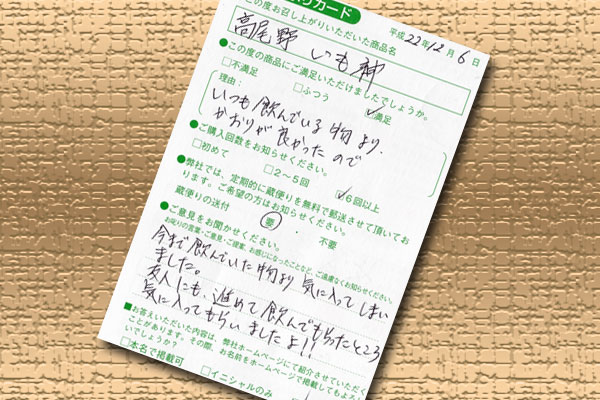 りカード
平成22年12月6日
この度お召し上がりいただいた商品名
高尾野 いも神
●この度の商品にご満足いただけましたでしょうか。
□不満足 □ふつう ☑満足
理由:
いつも飲んでいる物より、
かおりが良かったので
●ご購入回数をお知らせください。
□初めて □2〜5回 ☑6回以上
●弊社では、定期的に蔵便りを無料で郵送させて頂いてお
ります。ご希望の方はお知らせください。
蔵便りの送付 要 ・ 不要
●ご意見をお聞かせください。
お叱りの言葉・ご意見・ご提案、お感じになったことなど、ご遠慮なくお知らせください。
今まで飲んでいた物より気に入ってしまい
ました。
友人にも、進めて飲んでもらったところ
気に入ってもらいましたよ!!
■お答えいただいた内容は、弊社ホームページにて紹介させていただく
ことがあります。その際、お名前をホームページで掲載してもよろ
いでしょうか?
□本名で掲載可 □イニシャルのみ